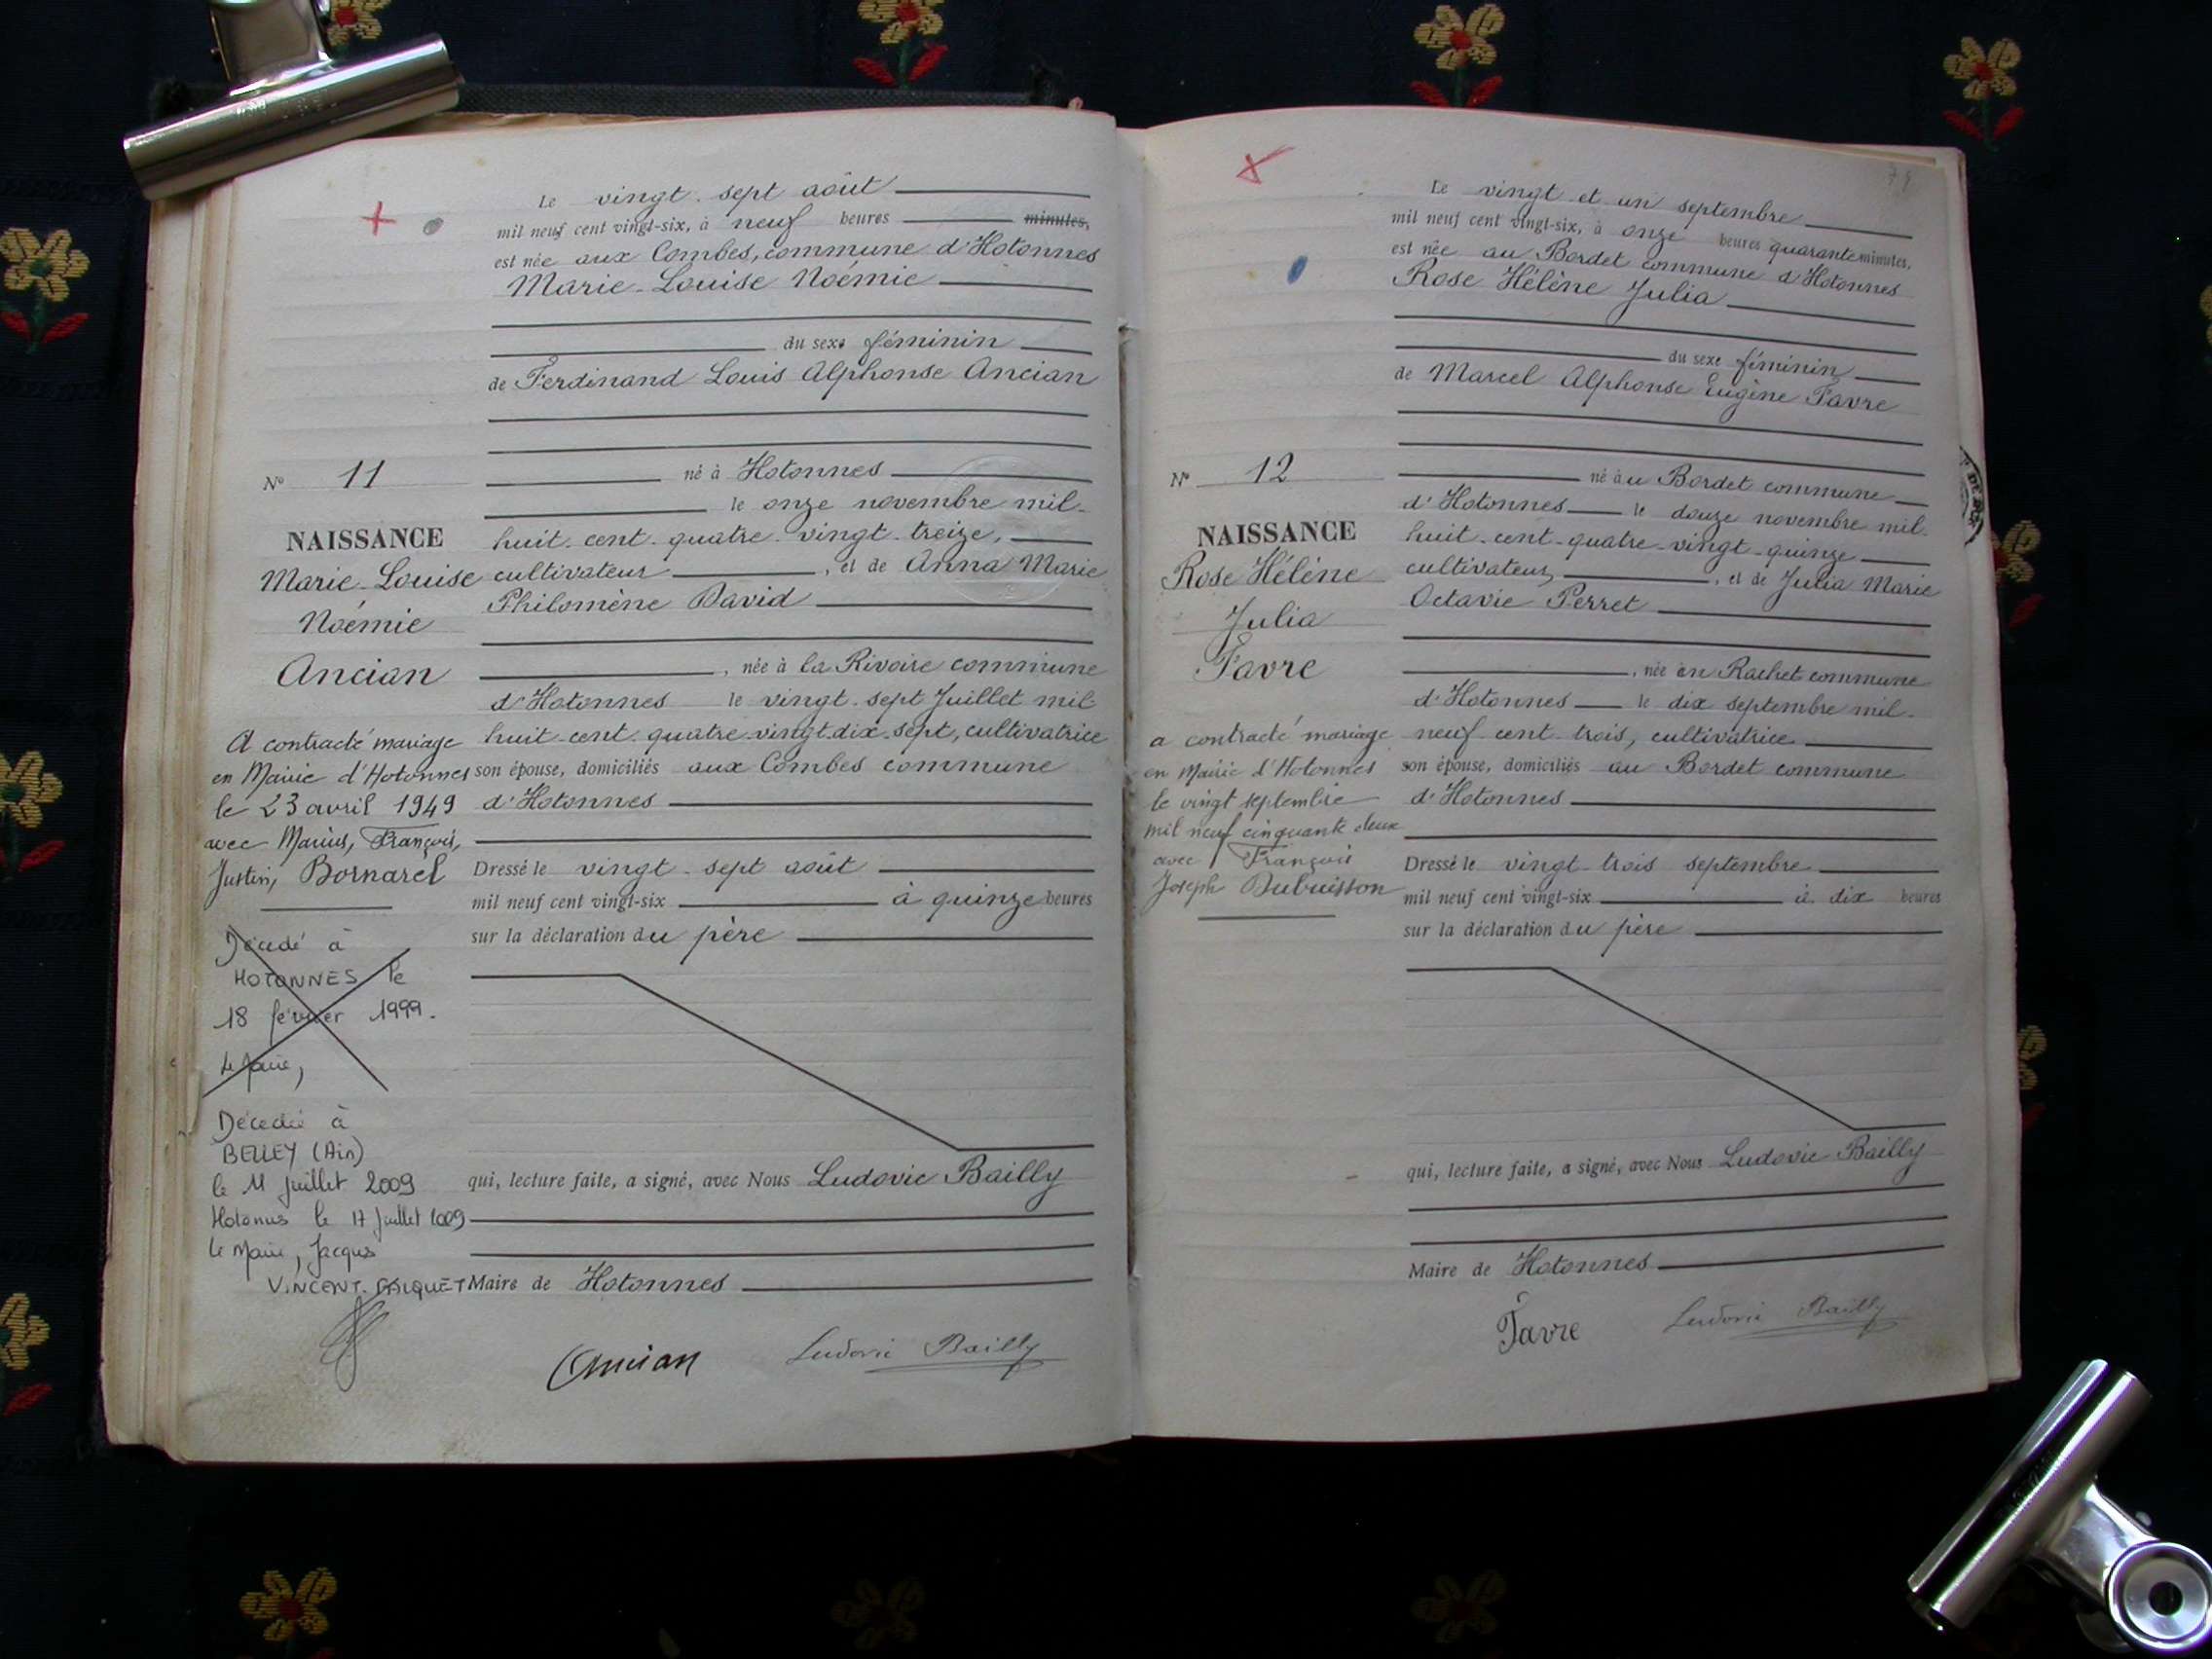 Le vingt-sept août
mil neuf cent vingt-six, à neuf heures minutes,
est née aux Combes, commune d'Hotonnes
Marie-Louise Noémie
du sexe féminin
de Ferdinand Louis Alphonse Ancian
né à Hotonnes
le onze novembre mil-
huit-cent-quatre-vingt-treize,
cultivateur, et de Anna Marie
Philomène David
, née à la Rivoire commune
d'Hotonnes le vingt-sept Juillet mil
huit-cent-quatre-vingt-dix-sept, cultivatrice
son épouse, domiciliés aux Combes commune
d'Hotonnes
Dressé le vingt-sept août
mil neuf cent vingt-six à quinze heures
sur la déclaration du père
qui, lecture faite, a signé, avec Nous Ludovic Bailly
Maire de Hotonnes
Ancian Ludovic Bailly
N° 11
NAISSANCE
Marie-Louise
Noémie
Ancian
A contracté mariage
en Mairie d'Hotonnes
le 23 avril 1949
avec Marius, François,
Justin, Bornarel
Décédé à
HOTONNES le
18 février 1999.
Le Maire,
Décédée à
BELLEY (Ain)
le 11 juillet 2009
Hotonnes le 17 juillet 2009
Le Maire, Jacques
VINCENT-FALQUET
Le vingt et un septembre
mil neuf cent vingt-six, à onze heures quarante minutes,
est née au Bordet commune d'Hotonnes
Rose Hélène Julia
du sexe féminin
de Marcel Alphonse Eugène Favre
né au Bordet commune
d'Hotonnes le douze novembre mil-
huit-cent-quatre-vingt-quinze
cultivateur, et de Julia Marie
Octavie Perret
, née en Rachet commune
d'Hotonnes le dix septembre mil-
neuf-cent-trois, cultivatrice
son épouse, domiciliés au Bordet commune
d'Hotonnes
Dressé le vingt-trois septembre
mil neuf cent vingt-six à dix heures
sur la déclaration du père
qui, lecture faite, a signé, avec Nous Ludovic Bailly
Maire de Hotonnes
Favre Ludovic Bailly
N° 12
NAISSANCE
Rose Hélène
Julia
Favre
a contracté mariage
en Mairie d'Hotonnes
le vingt septembre
mil neuf cinquante deux
avec François
Joseph Dubuisson